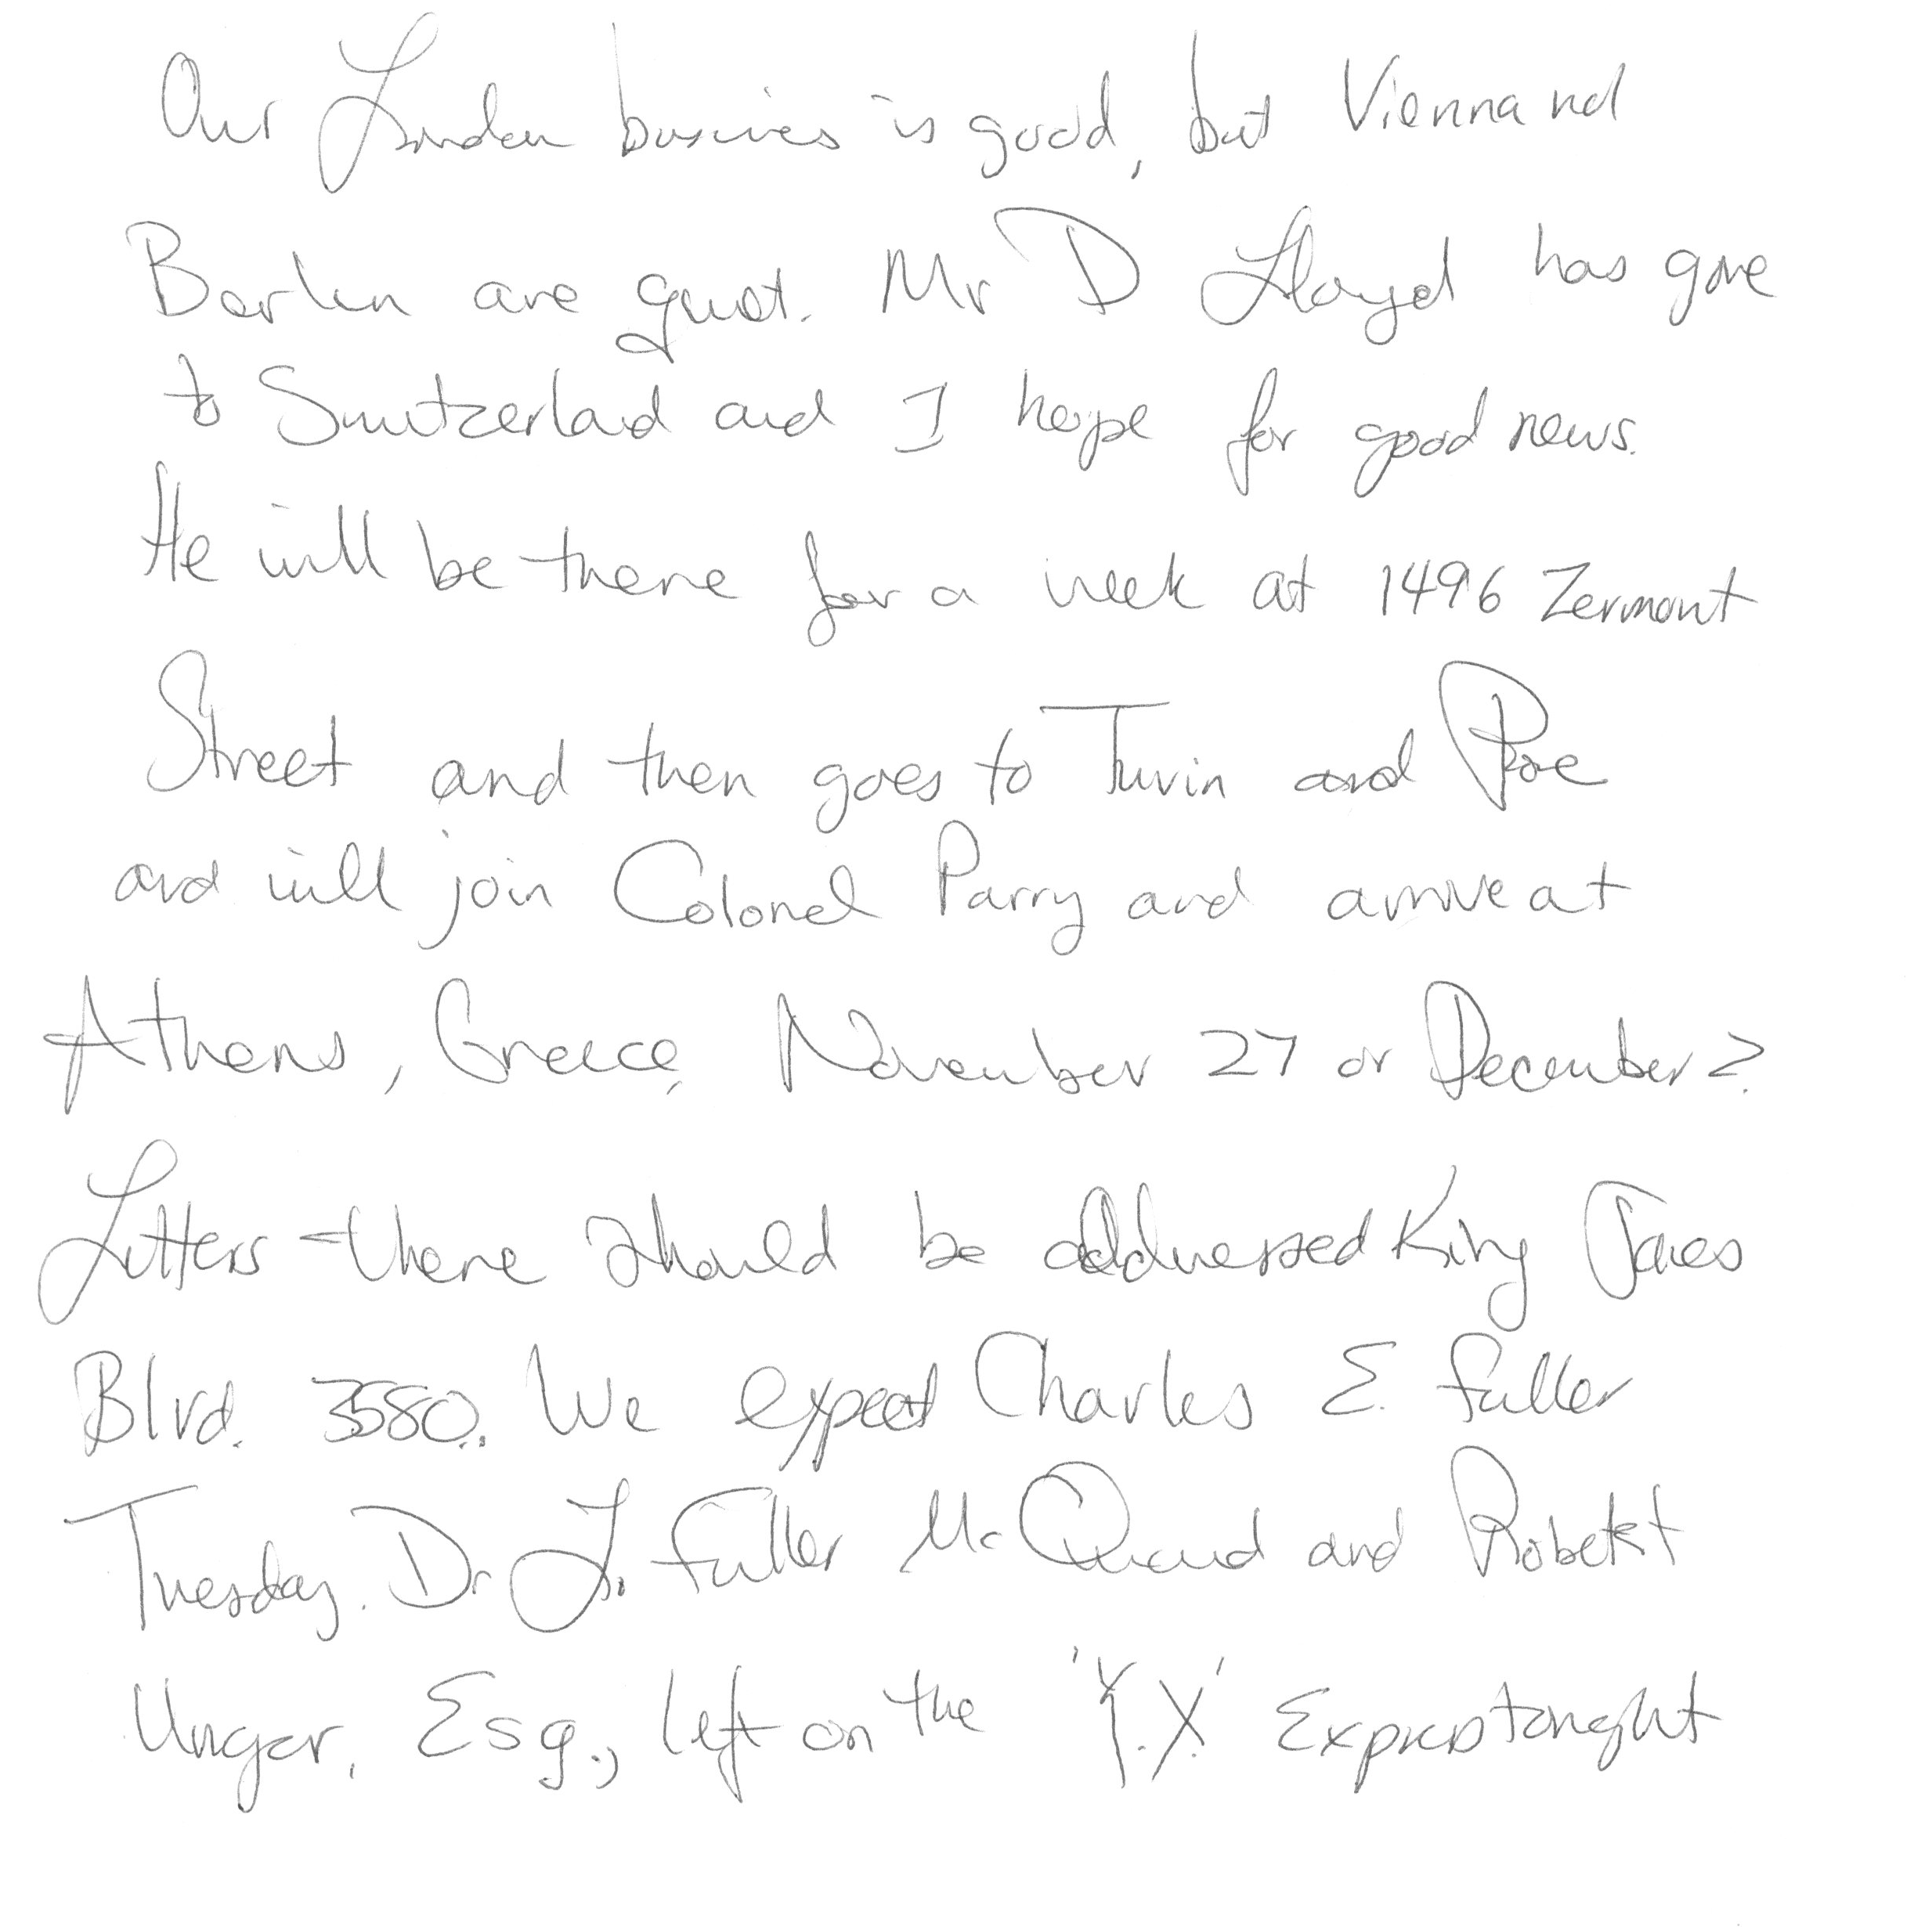 Our London business is good, but Vienna nd
Berlin are quiet. Mr D Lloyd has gone
to Switzerland and I hope for good news.
He will be there for a week at 1496 Zermont
Street and then goes to Turin and
and will join Colonel Parry and arrive at
Athens, Greece, November 27 or December 2.
Letters there should be addressed King James
Blvd. 3580. We expect Charles E. Fuller
Tuesday. Dr L. Fuller Mc Quaid and Robert
Unger, Esq., left on the 'Y.X.' Express tonight